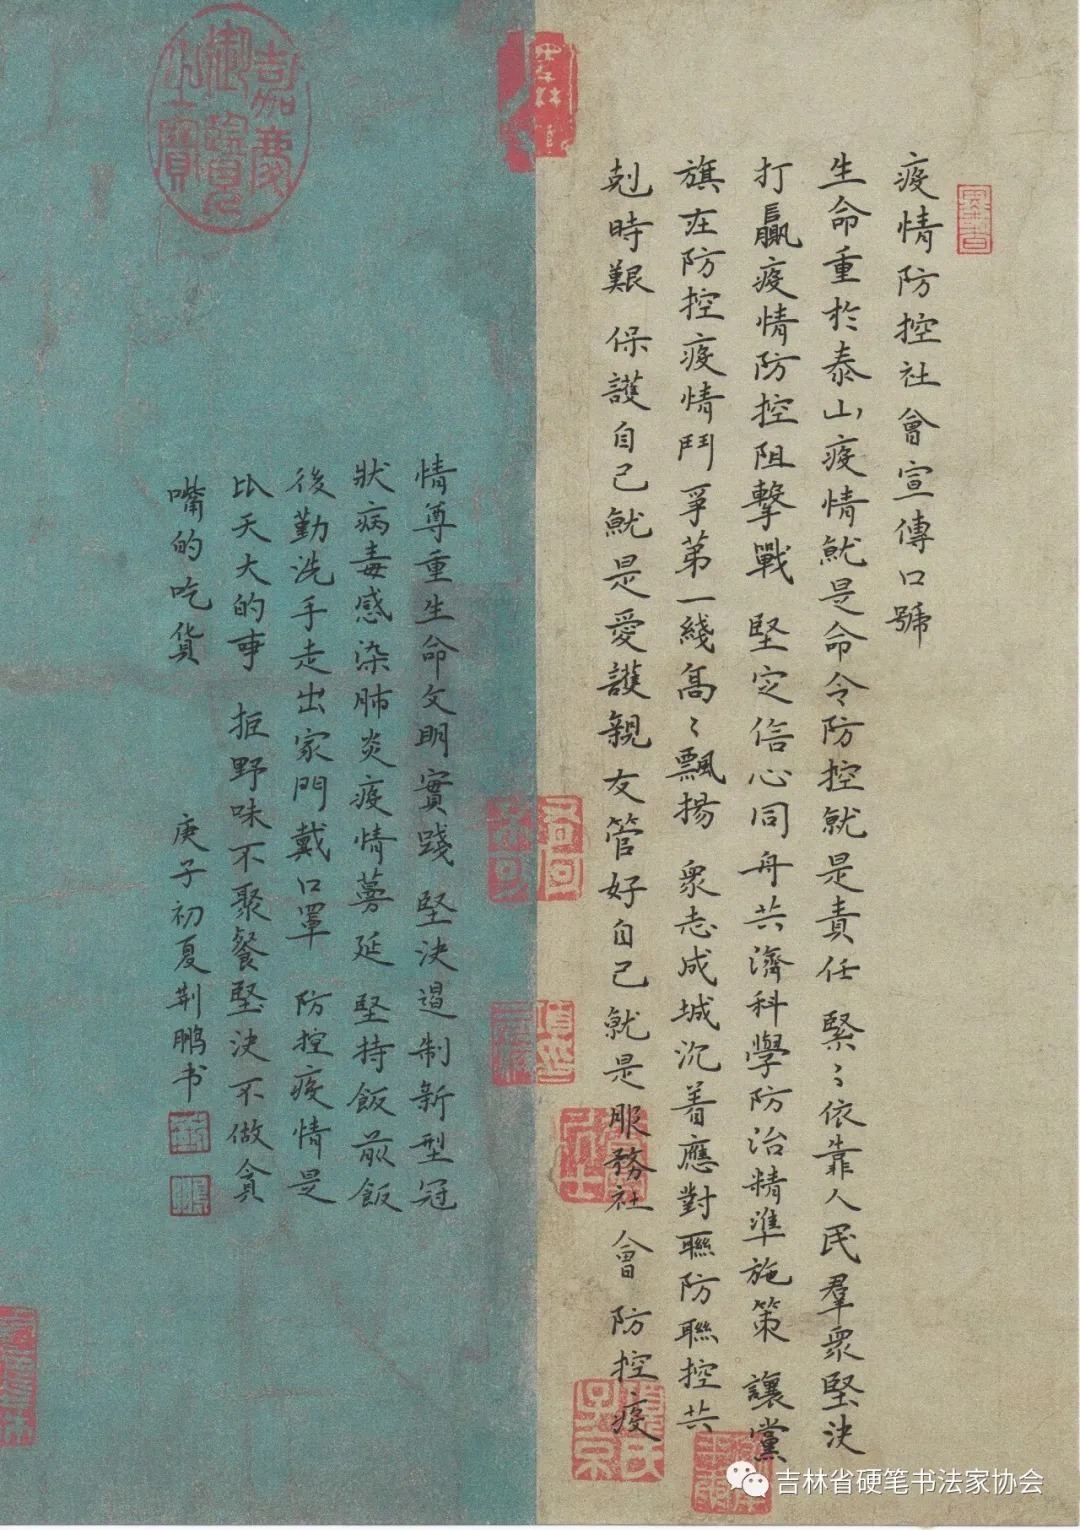 疫情防控社會宣傳口號
生命重於泰山疫情就是命令防控就是責任 緊〻依靠人民羣眾堅決
打贏疫情防控阻擊戰 堅定信心同舟共濟科學防治精準施策 讓黨
旗在防控疫情鬥爭第一綫高〻飄揚 衆志成城沉着應對聯防聯控共
剋時艱 保護自己就是愛護親友管好自己就是服務社會 防控疫
情尊重生命文明實踐 堅決遏制新型冠
狀病毒感染肺炎疫情蔓延 堅持飯前飯
後勤洗手走出家門戴口罩 防控疫情是
比天大的事 拒野味不聚餐堅決不做貪
嘴的吃货 庚子初夏荆鹏书
嘉慶
御覽
之寶
吉林省硬笔书法家协会